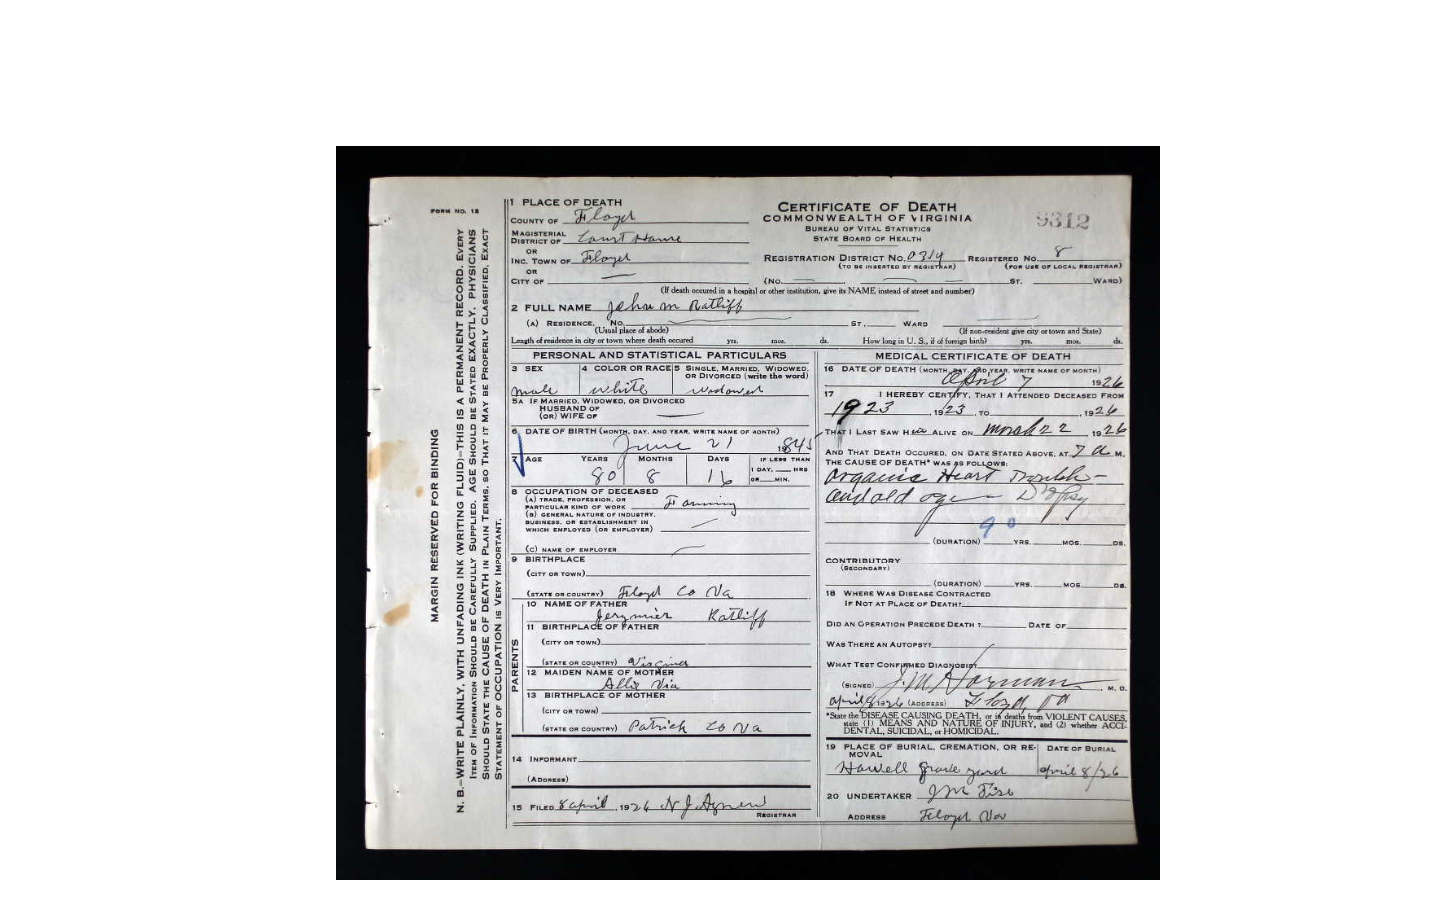 FORM NO. 12
MARGIN RESERVED FOR BINDING
N. B.—WRITE PLAINLY, WITH UNFADING INK (WRITING FLUID)—THIS IS A PERMANENT RECORD. EVERY
ITEM OF INFORMATION SHOULD BE CAREFULLY SUPPLIED. AGE SHOULD BE STATED EXACTLY. PHYSICIANS
SHOULD STATE THE CAUSE OF DEATH IN PLAIN TERMS, SO THAT IT MAY BE PROPERLY CLASSIFIED. EXACT
STATEMENT OF OCCUPATION IS VERY IMPORTANT.
1 PLACE OF DEATH
COUNTY OF Floyd
MAGISTERIAL
DISTRICT OF Court House
OR
INC. TOWN OF Floyd
OR
CITY OF
CERTIFICATE OF DEATH
COMMONWEALTH OF VIRGINIA
BUREAU OF VITAL STATISTICS
STATE BOARD OF HEALTH
9312
REGISTRATION DISTRICT NO. 0319 REGISTERED NO. 8
(TO BE INSERTED BY REGISTRAR) (FOR USE OF LOCAL REGISTRAR)
(NO. ST. WARD)
(If death occured in a hospital or other institution, give its NAME instead of street and number)
2 FULL NAME John M Ratliff
(A) RESIDENCE, NO. ST., WARD
(Usual place of abode) (If non-resident give city or town and State)
Length of residence in city or town where death occured yrs. mos. ds. How long in U. S., if of foreign birth? yrs. mos. ds.
PERSONAL AND STATISTICAL PARTICULARS
3 SEX 4 COLOR OR RACE 5 SINGLE, MARRIED, WIDOWED,
OR DIVORCED (write the word)
male white widowed
5A IF MARRIED, WIDOWED, OR DIVORCED
HUSBAND OF
(OR) WIFE OF
6 DATE OF BIRTH (MONTH, DAY, AND YEAR, WRITE NAME OF MONTH)
June 21 1845
7 AGE YEARS MONTHS DAYS IF LESS THAN
1 DAY, HRS
OR MIN.
80 8 16
8 OCCUPATION OF DECEASED
(A) TRADE, PROFESSION, OR
PARTICULAR KIND OF WORK Farming
(B) GENERAL NATURE OF INDUSTRY,
BUSINESS, OR ESTABLISHMENT IN
WHICH EMPLOYED (OR EMPLOYER)
(C) NAME OF EMPLOYER
9 BIRTHPLACE
(CITY OR TOWN)
(STATE OR COUNTRY) Floyd Co Va
PARENTS
10 NAME OF FATHER
Ratliff
11 BIRTHPLACE OF FATHER
(CITY OR TOWN)
(STATE OR COUNTRY) Virginia
12 MAIDEN NAME OF MOTHER
Allie Via
13 BIRTHPLACE OF MOTHER
(CITY OR TOWN)
(STATE OR COUNTRY) Patrick Co Va
14 INFORMANT
(ADDRESS)
15 FILED 8 april, 1926 N J Agnew
REGISTRAR
MEDICAL CERTIFICATE OF DEATH
16 DATE OF DEATH (MONTH, DAY, AND YEAR, WRITE NAME OF MONTH)
April 7 1926
17 I HEREBY CERTIFY, THAT I ATTENDED DECEASED FROM
1923, 1923, TO , 1926
THAT I LAST SAW H ALIVE ON March 22 1926
AND THAT DEATH OCCURED, ON DATE STATED ABOVE, AT 7 a M.
THE CAUSE OF DEATH* WAS AS FOLLOWS:
Organic Heart Trouble-
and old age Dropsy
90
(DURATION) YRS. MOS. DS.
CONTRIBUTORY
(SECONDARY)
(DURATION) YRS. MOS. DS.
18 WHERE WAS DISEASE CONTRACTED
IF NOT AT PLACE OF DEATH?
DID AN OPERATION PRECEDE DEATH? DATE OF
WAS THERE AN AUTOPSY?
WHAT TEST CONFIRMED DIAGNOSIS?
(SIGNED) , M. D.
april 8 1926 (ADDRESS) Floyd, Va
*State the DISEASE CAUSING DEATH, or in deaths from VIOLENT CAUSES,
state (1) MEANS AND NATURE OF INJURY, and (2) whether ACCI-
DENTAL, SUICIDAL, or HOMICIDAL.
19 PLACE OF BURIAL, CREMATION, OR RE- DATE OF BURIAL
MOVAL
Howell grave yard april 8/26
20 UNDERTAKER
ADDRESS Floyd Va